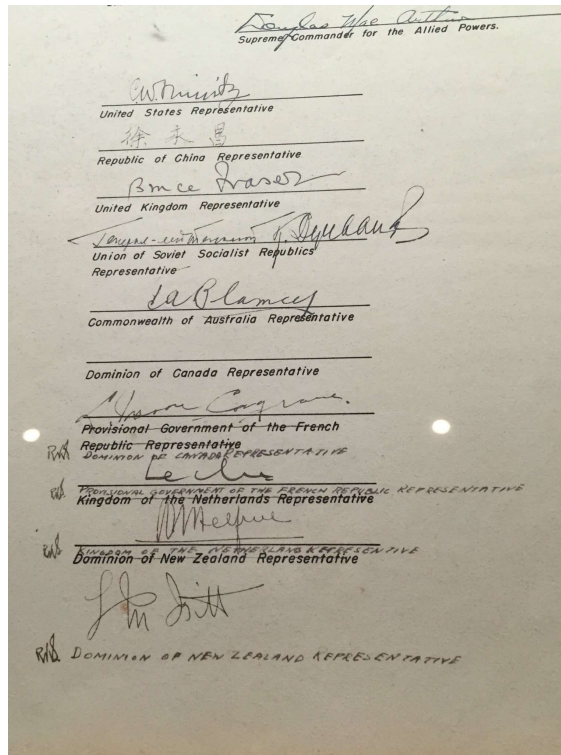 Douglas MacArthur
Supreme Commander for the Allied Powers.
C.W. Nimitz
United States Representative
徐永昌
Republic of China Representative
Bruce Fraser
United Kingdom Representative
Union of Soviet Socialist Republics
Representative
T.A. Blamey
Commonwealth of Australia Representative
Dominion of Canada Representative
L. Moore Cosgrave.
Provisional Government of the French
Republic Representative
RKS DOMINION OF CANADA REPRESENTATIVE
Leclerc
RKS PROVISIONAL GOVERNMENT OF THE FRENCH REPUBLIC REPRESENTATIVE
Kingdom of the Netherlands Representative
Helfrich
RKS KINGDOM OF THE NETHERLAND REPRESENTATIVE
Dominion of New Zealand Representative
L M Isitt
RKS DOMINION OF NEW ZEALAND REPRESENTATIVE